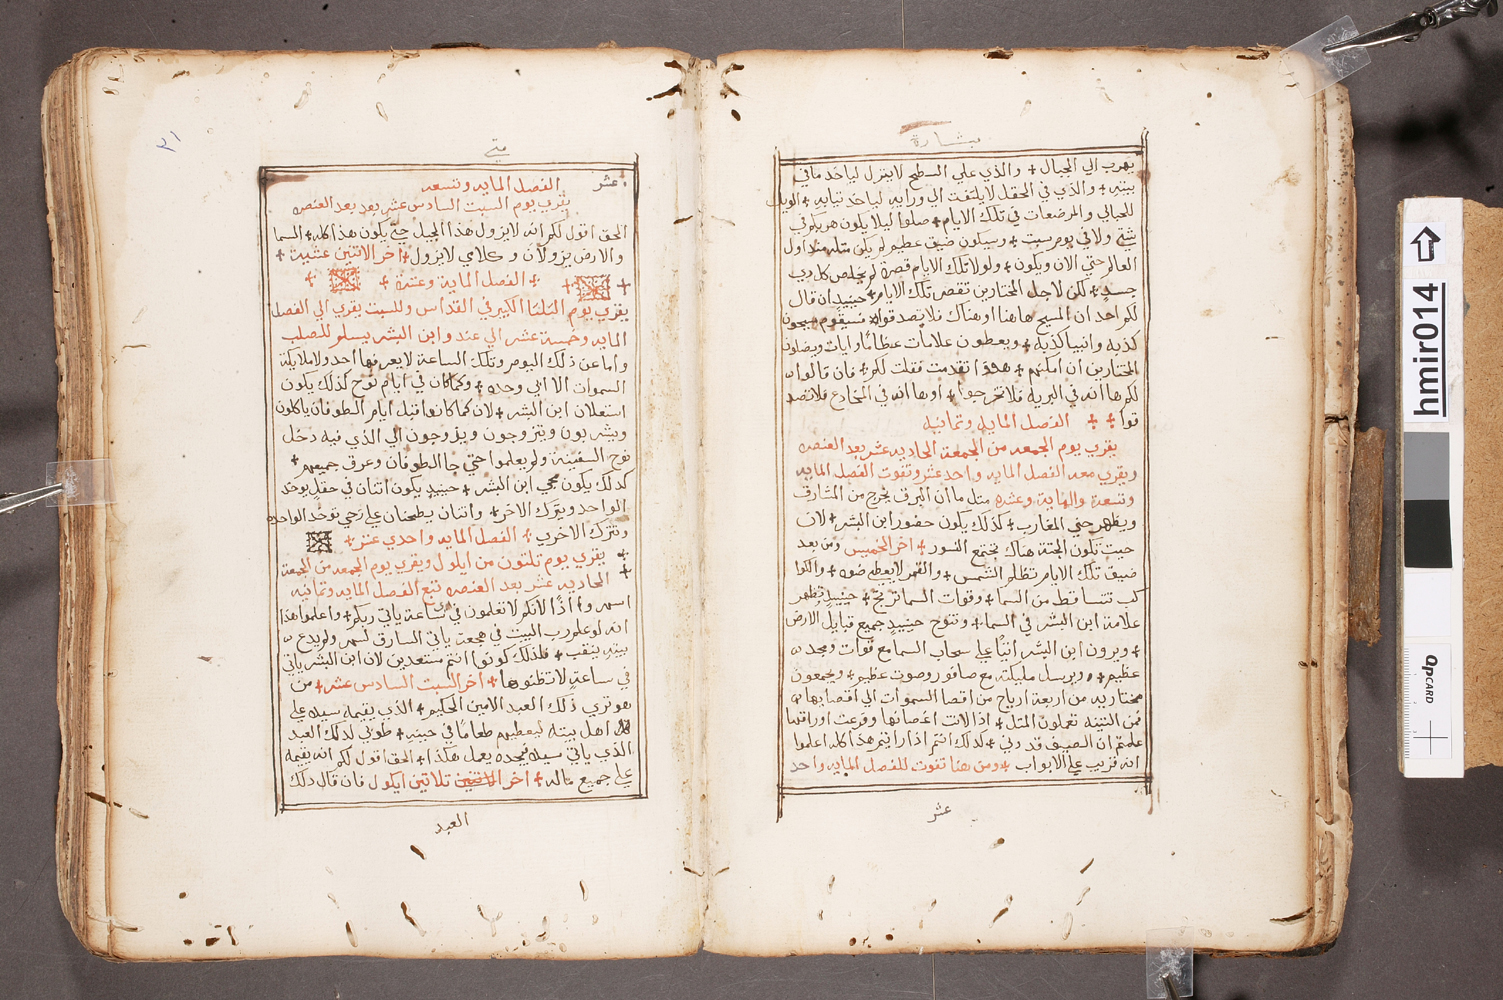 بشارة
يهرب الي الجبال + والذي علي السطح لا ينزل لياخد ما في
بيته + والذي في الحقل لا يلتفت الي ورايه لياخد تيابه + الويل
للحبالي والمرضعات في تلك الايام + صلوا ليلا يكون هربكم في
شتي ولا في يوم سبت + وسيكون ضيق عظيم لم يكن متله مند اول
العالم حتي الان ويكون + ولولا تلك الايام قصرة لم يخلص كل دي
جسد + لكن لاجل المختارين تنقص تلك الايام + حينيد ان قال
لكم احد ان المسيح هاهنا او هناك فلا تصدقوا + فسيقوم مسيحون
كدبه وانبيا كدبه + ويعطون علامات عظاما وايات ويضلون
المختارين ان امكنهم + هدا تقدمت فقلت لكم + فان قالوا
لكم ها انه في البريه فلا تخرجوا + او ها انه في المخادع فلا تصد
قوا + + الفصل المايه وتمانيه
يقري يوم الجمعه من الجمعة الحاديه عشر بعد العنصه
ويقري معه الفصل المايه واحد عشر وتفوت الفصل المايه
وتسعة والمايه وعشره متل ما ان البرق يخرج من المشارق
ويظهر حتي المغارب + كدلك يكون حضور ابن البشر + لان
حيت تكون الجتة هناك تجتمع النسور + اخر الخميس ومن بعد
ضيق تلك الايام تظلم الشمس + والقمر لا يعطي ضوه + والكوا
كب تتساقط من السما + وقوات السما ترتج + حينيد تظهر
علامة ابن البشر في السما + وتنوح حينيد جميع قبايل الارض
+ ويرون ابن البشر اتيا علي سحاب السما مع قوات ومجد
عظيم + ويرسل مليكته مع صافور وصوت عظيم + ويجمعون
مختاريه من اربعة ارياح من اقصا السموات الي اقصايها
فمن التينه تعلمون المتل + ادا لانت اغصانها وفرعت اوراقها
علمتم ان الصيف قد دني + كدلك انتم ادا رايتم هدا كله اعلموا
انه قريب علي الابواب + ومن هنا تفوت للفصل المايه واحد
عشر
متي
٢١
عشر الفصل المايه وتسعه
يقري يوم السبت السادس عشر بعد بعد العنصه
الحق اقول لكم انه لا يزول هدا الجيل حتي يكون هدا كله + السما
والارض يزولان وكلامي لا يزول + اخر الاتنين عشية +
+ الفصل الماية وعشرة +
يقري يوم التلتا الكبير في القداس وللسبت يقري الي الفصل
المايه وخمسة عشر الي عند وابن البشر يسلم للصلب
واما عن دلك اليوم وتلك الساعة لا يعرفها احد ولا ملايكة
السموات الا ابي وحده + وكما كان في ايام نوح كدلك يكون
استعلان ابن البشر + لان كما كانوا قبل ايام الطوفان ياكلون
ويشربون ويتزوجون ويزوجون الي الذي فيه دخل
نوح السفينة ولم يعلموا حتي جا الطوفان وغرق جميعهم +
كدلك يكون مجي ابن البشر + حينيد يكون اتنان في حقل يوخد
الواحد ويترك الاخر + واتنتان يطحنان علي رحي توخد الواحده
وتترك الاخري + الفصل المايه واحدي عشر +
+ يقري يوم تلتون من ايلول ويقري يوم الجمعه من الجمعة
+ الحاديه عشر بعد العنصه تبع الفصل المايه وتمانيه
اسهروا ادا لانكم لا تعلمون في اي ساعة ياتي ربكم + واعلموا هدا
انه لو علم رب البيت في اي هجعت ياتي السارق لسهر ولم يدع
بيته ينقب + فلدلك كونوا انتم مستعدين لان ابن البشر ياتي
في ساعة لا تظنوها + اخر السبت السادس عشر + من
هو تري دلك العبد الامين الحكيم + الذي يقيمه سيده علي
اهل بيته ليعطيهم طعاما في حينه + طوبي لدلك العبد
الذي ياتي سيده فيجده يعمل هكدا + الحق اقول لكم انه يقيمه
علي جميع ماله + اخر تلاتين ايلول فان قال دلك
العبد
hmir014
QPcard